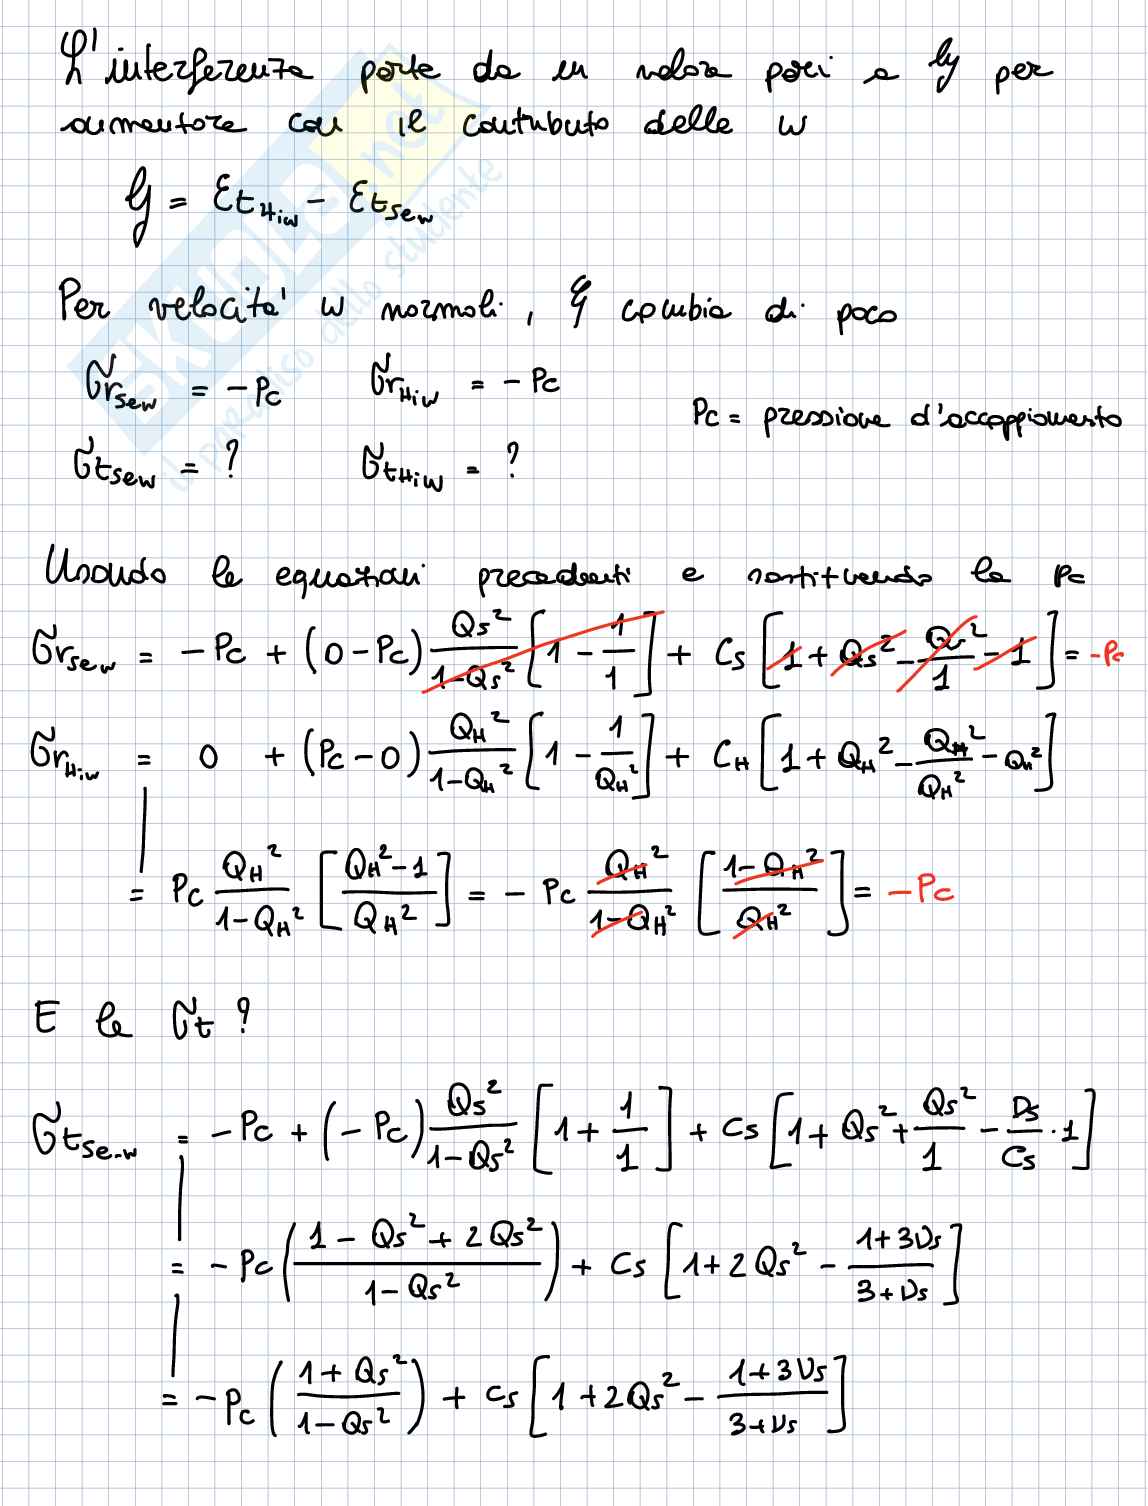 L'interferenza parte da un valore pari a iy per
aumentare con il contributo delle w
iy = εt_Hiw − εt_sew
Per velocità w normali, iy cambia di poco
σr_sew = −Pc σr_Hiw = −Pc
Pc = pressione d'accoppiamento
σt_sew = ? σt_Hiw = ?
Usando le equazioni precedenti e sostituendo la Pc
σr_sew = −Pc + (0−Pc) Qs²/(1−Qs²) [1 − 1/1] + Cs [1 + Qs² − Qs²/1 − 1] = −Pc
σr_Hiw = 0 + (Pc−0) QH²/(1−QH²) [1 − 1/QH²] + CH [1 + QH² − QH²/QH² − QH²]
= Pc QH²/(1−QH²) [(QH²−1)/QH²] = − Pc QH²/(1−QH²) [(1−QH²)/QH²] = −Pc
E le σt ?
σt_se-w = −Pc + (−Pc) Qs²/(1−Qs²) [1 + 1/1] + Cs [1 + Qs² + Qs²/1 − Ds/Cs · 1]
= −Pc ((1 − Qs² + 2Qs²)/(1 − Qs²)) + Cs [1 + 2Qs² − (1+3νs)/(3+νs)]
= −Pc ((1 + Qs²)/(1 − Qs²)) + Cs [1 + 2Qs² − (1+3νs)/(3+νs)]
SKUOLA.net
il paradiso dello studente